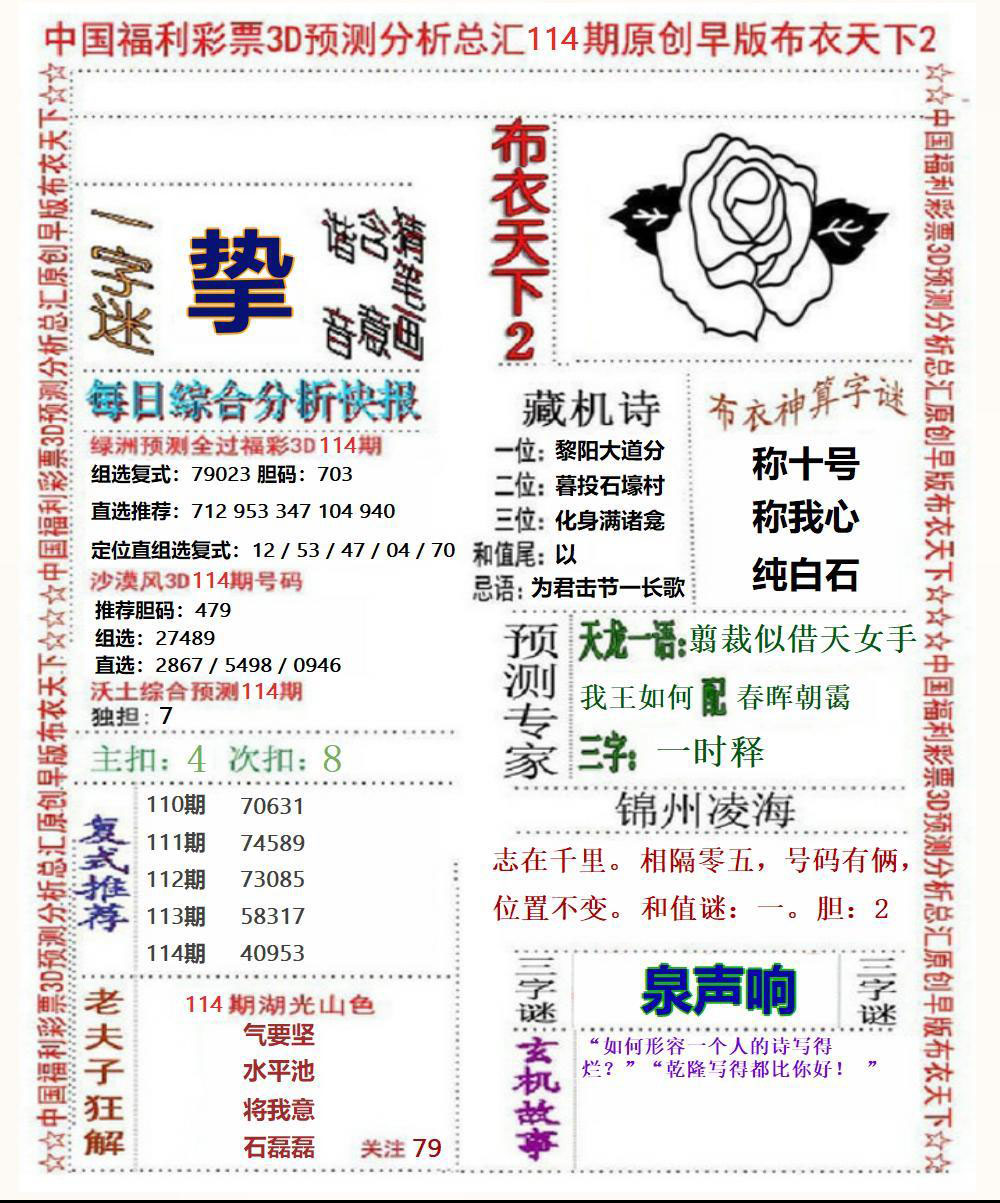 中国福利彩票3D预测分析总汇114期原创早版布衣天下2
☆☆中国福利彩票3D预测分析总汇原创早版布衣天下☆☆☆中国福利彩票3D预测分析总汇原创早版布衣天下☆☆
一字迷
挚
布衣天下2
每日综合分析快报
绿洲预测全过福彩3D114期
组选复式：79023 胆码：703
直选推荐：712 953 347 104 940
定位直组选复式：12 / 53 / 47 / 04 / 70
沙漠风3D114期号码
推荐胆码：479
组选：27489
直选：2867 / 5498 / 0946
沃土综合预测114期
独担：7
主扣：4 次扣：8
复式推荐
110期 70631
111期 74589
112期 73085
113期 58317
114期 40953
老夫子狂解
114期湖光山色
气要坚
水平池
将我意
石磊磊 关注 79
藏机诗
一位：黎阳大道分
二位：暮投石壕村
三位：化身满诸龛
和值尾：以
忌语：为君击节一长歌
布衣神算字谜
称十号
称我心
纯白石
预测专家
天龙一语:翦裁似借天女手
我王如何 配 春晖朝霭
三字：一时释
锦州凌海
志在千里。相隔零五，号码有俩，
位置不变。和值谜：一。胆：2
三字谜
泉声响
三字谜
玄机故事
“如何形容一个人的诗写得
烂？”“乾隆写得都比你好！ ”
☆☆中国福利彩票3D预测分析总汇原创早版布衣天下☆☆☆中国福利彩票3D预测分析总汇原创早版布衣天下☆☆